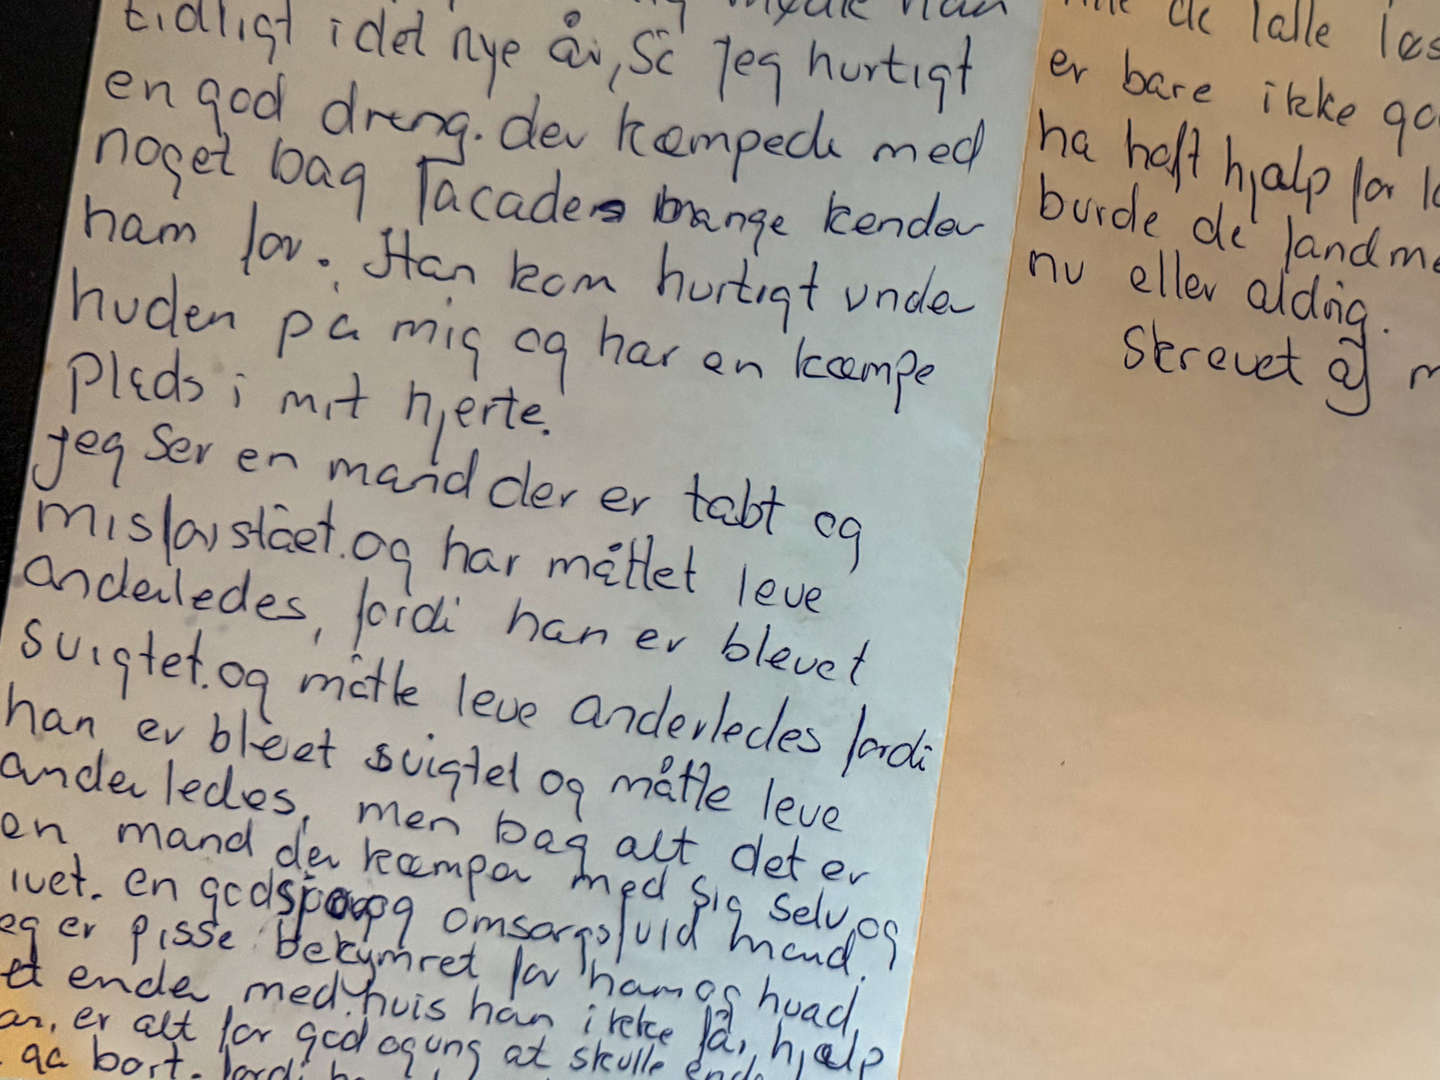 tidligt i det nye år, så jeg hurtigt
en god dreng. der kæmpede med
noget bag facaden mange kender
ham for. Han kom hurtigt under
huden på mig og har en kæmpe
Plads i mit hjerte.
Jeg ser en mand der er tabt og
misforstået. og har måttet leve
anderledes, fordi han er blevet
svigtet. og måtte leve anderledes fordi
han er bleet svigtet og måtte leve
anderledes, men bag alt det er
en mand der kæmper med sig selv og
ivet. en god og omsorgsfuld mand.
eg er pisse bekymret for ham og hvad
et ender med. hvis han ikke får hjælp
an, er alt for god og ung at skulle ende
ga bort. fordi
de falle læs
er bare ikke go
ha haft hjælp for
burde de landm
nu eller aldrig.
Skrevet af m